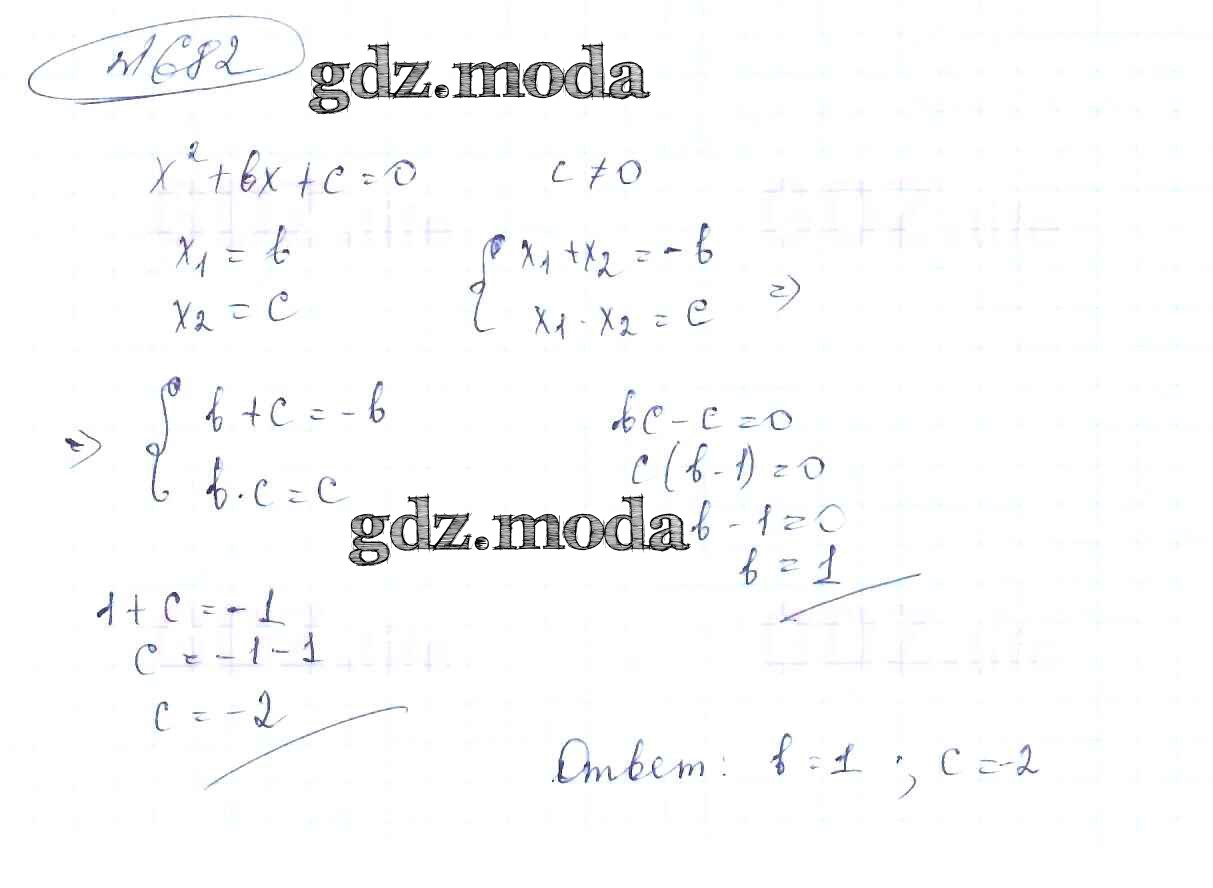 №682
gdz.moda
x²+bx+c=0 c≠0
x₁=b { x₁+x₂=-b
x₂=c x₁·x₂=c =>
=> { b+c=-b
b·c=c
bc-c=0
c(b-1)=0
gdz.moda
b-1=0
b=1
1+c=-1
c=-1-1
c=-2
Ответ: b=1 ; c=-2